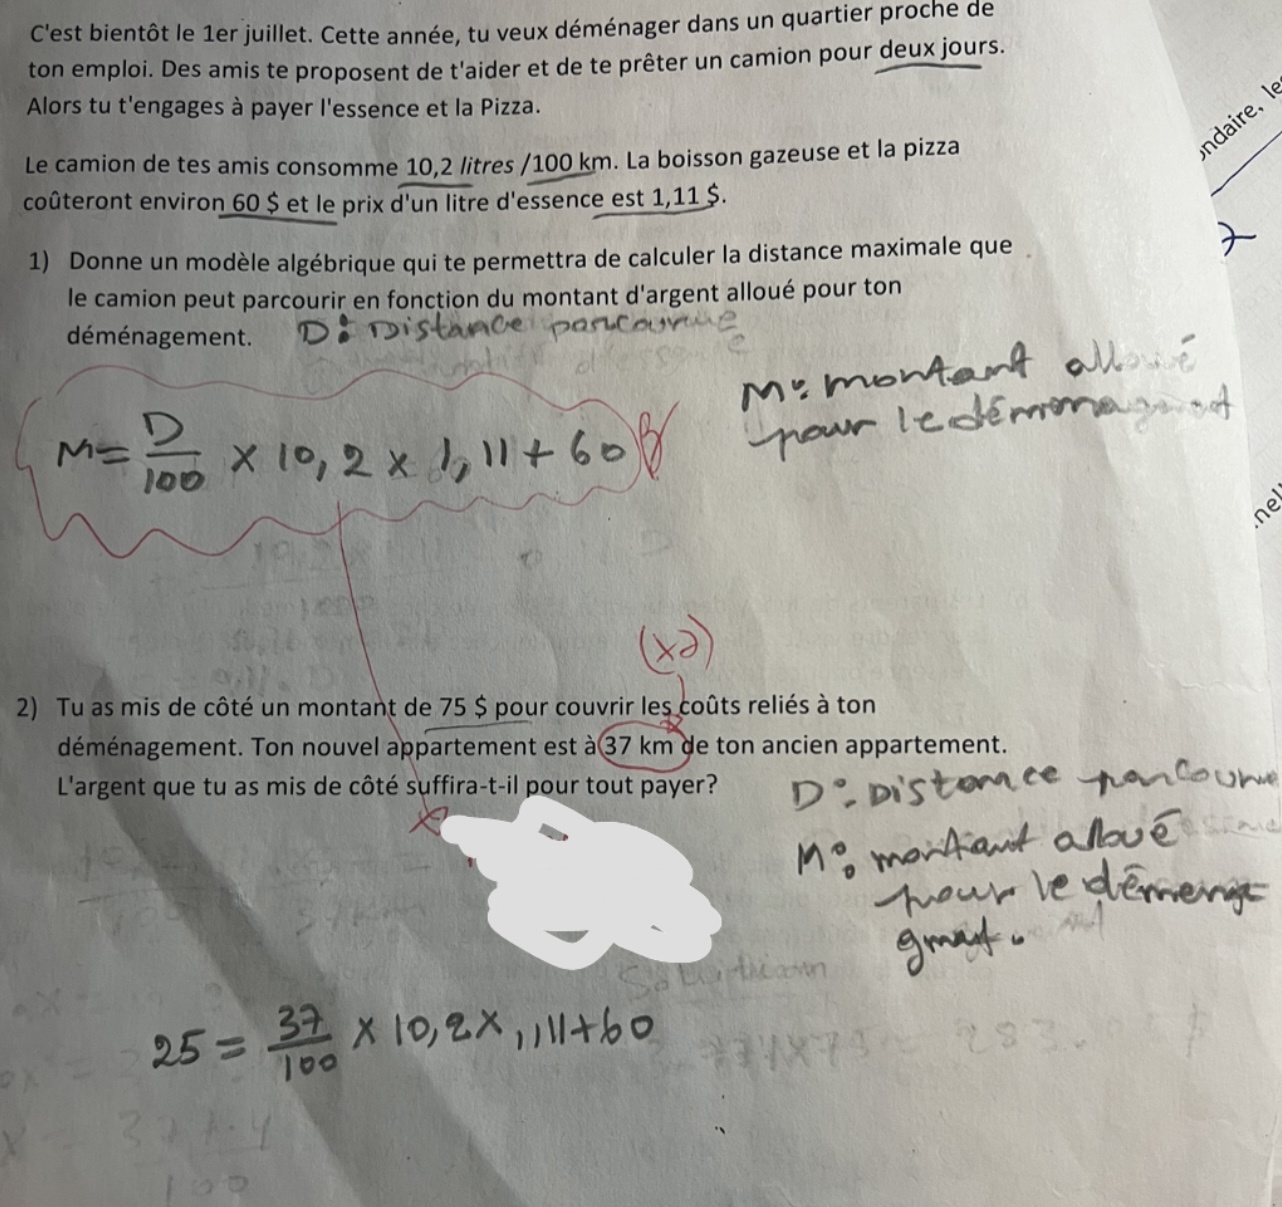 C'est bientôt le 1er juillet. Cette année, tu veux déménager dans un quartier proche de
ton emploi. Des amis te proposent de t'aider et de te prêter un camion pour deux jours.
Alors tu t'engages à payer l'essence et la Pizza.
Le camion de tes amis consomme 10,2 litres /100 km. La boisson gazeuse et la pizza
coûteront environ 60 $ et le prix d'un litre d'essence est 1,11 $.
ndaire, le
1) Donne un modèle algébrique qui te permettra de calculer la distance maximale que
le camion peut parcourir en fonction du montant d'argent alloué pour ton
déménagement. D: Distance parcourue
M: montant alloué
pour le déménagement
M = D/100 x 10,2 x 1,11 + 60
nel
(x2)
2) Tu as mis de côté un montant de 75 $ pour couvrir les coûts reliés à ton
déménagement. Ton nouvel appartement est à 37 km de ton ancien appartement.
L'argent que tu as mis de côté suffira-t-il pour tout payer?
D: Distance parcourue
M: montant alloué
pour le démenge
gmat.
25 = 37/100 x 10,2 x 1,11 + 60